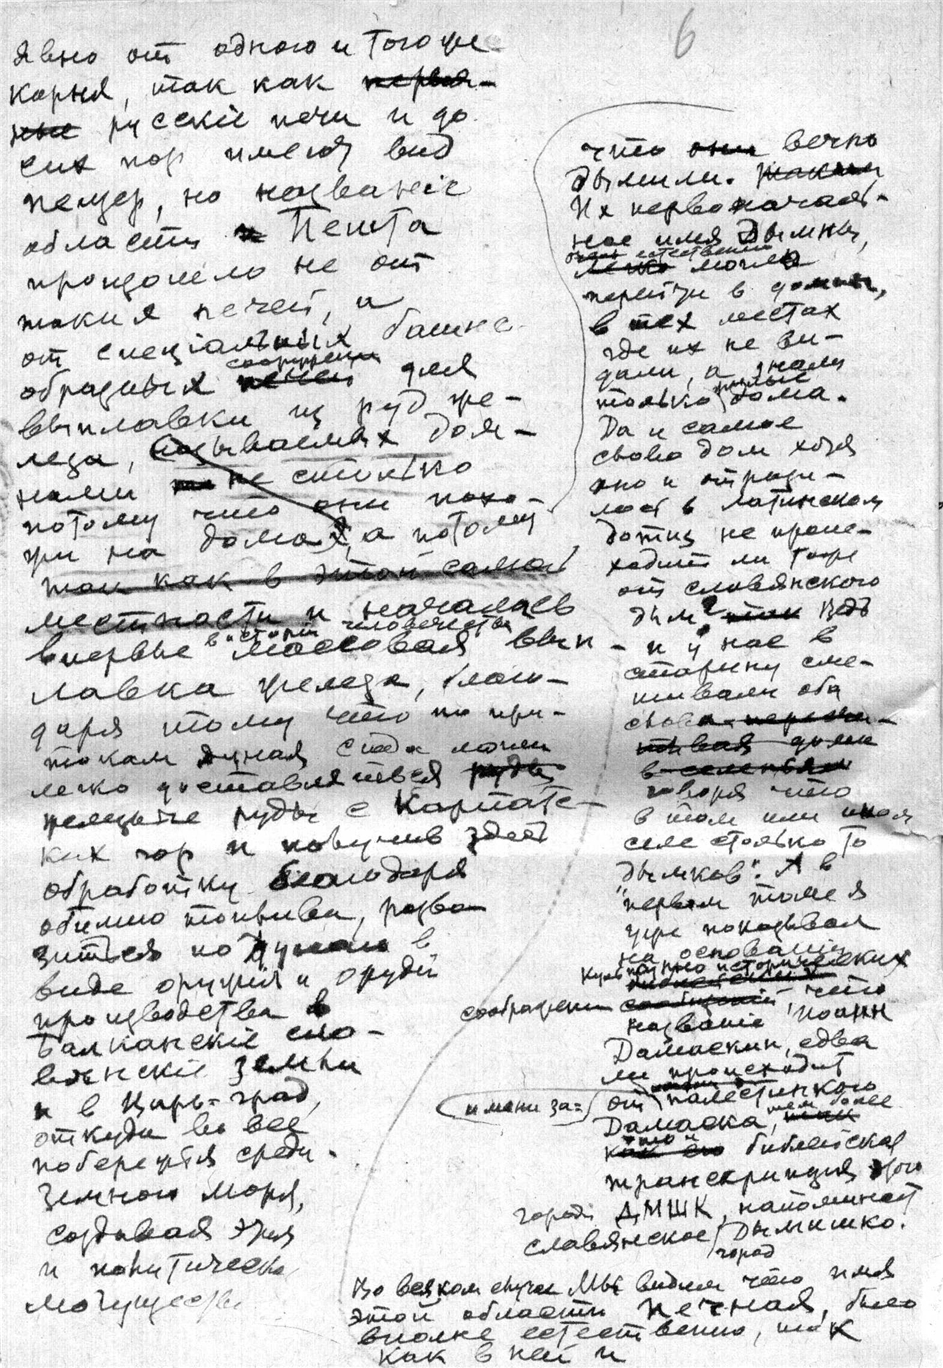 6
явно от одного и того же
корня, так как первая-
ные русскіе печи и до
сих пор имеют вид
пещер, но названіе
области Пешта
произошло не от
таких печей, а
от спеціальных башне-
образных печей сооружений для
выплавки из руд же-
леза, называемых дом-
нами не столько
потому что они похо-
жи на дома, а потому
так как в этой самой
местности и началась
впервые в исторіи человечества массовая вып-
лавка железа, благо-
даря тому что по при-
токам Дуная сюда могли
легко доставляться руды
железные руды с Карпатс-
ких гор и получив здесь
обработку благодаря
обилию топлива, разво-
зиться по Дунаю в
виде оружія и орудій
производства в
Балканскіе сла-
вянскіе земли
и в Царь-град,
откуда во все
побережья среди-
земного моря,
создавая
и политическое
могущество
что они вечно
дымили.
Их первоначаль-
ное имя Дымны,
очень естественно легко могло
перейти в домны,
в тех местах
где их не ви-
дали, а знали
только жилые дома.
Да и самое
слово дом хотя
оно и отрази-
лось в латинском
дотиц не проис-
ходит ли тоже
от славянского
дым? так Ведь
и у нас в
старину сме-
шивали оба
слова
говоря что
в том или ином
селе столько то
"дымков". А в
первом томе я
уже показывал
на основаніи
культурно исторических
соображений сообщений, что
названіе Иоанн
Дамаскин, едва
ли происходит
от имени за= палестинкого
Дамаска, тем более так
что и как его библейская
транскрипция этого
города ДМШК, напоминает
славянское город Дымишко.
Во всяком случае мы видим что имя
этой области Печная, было
вполне естественно, так
как в ней и